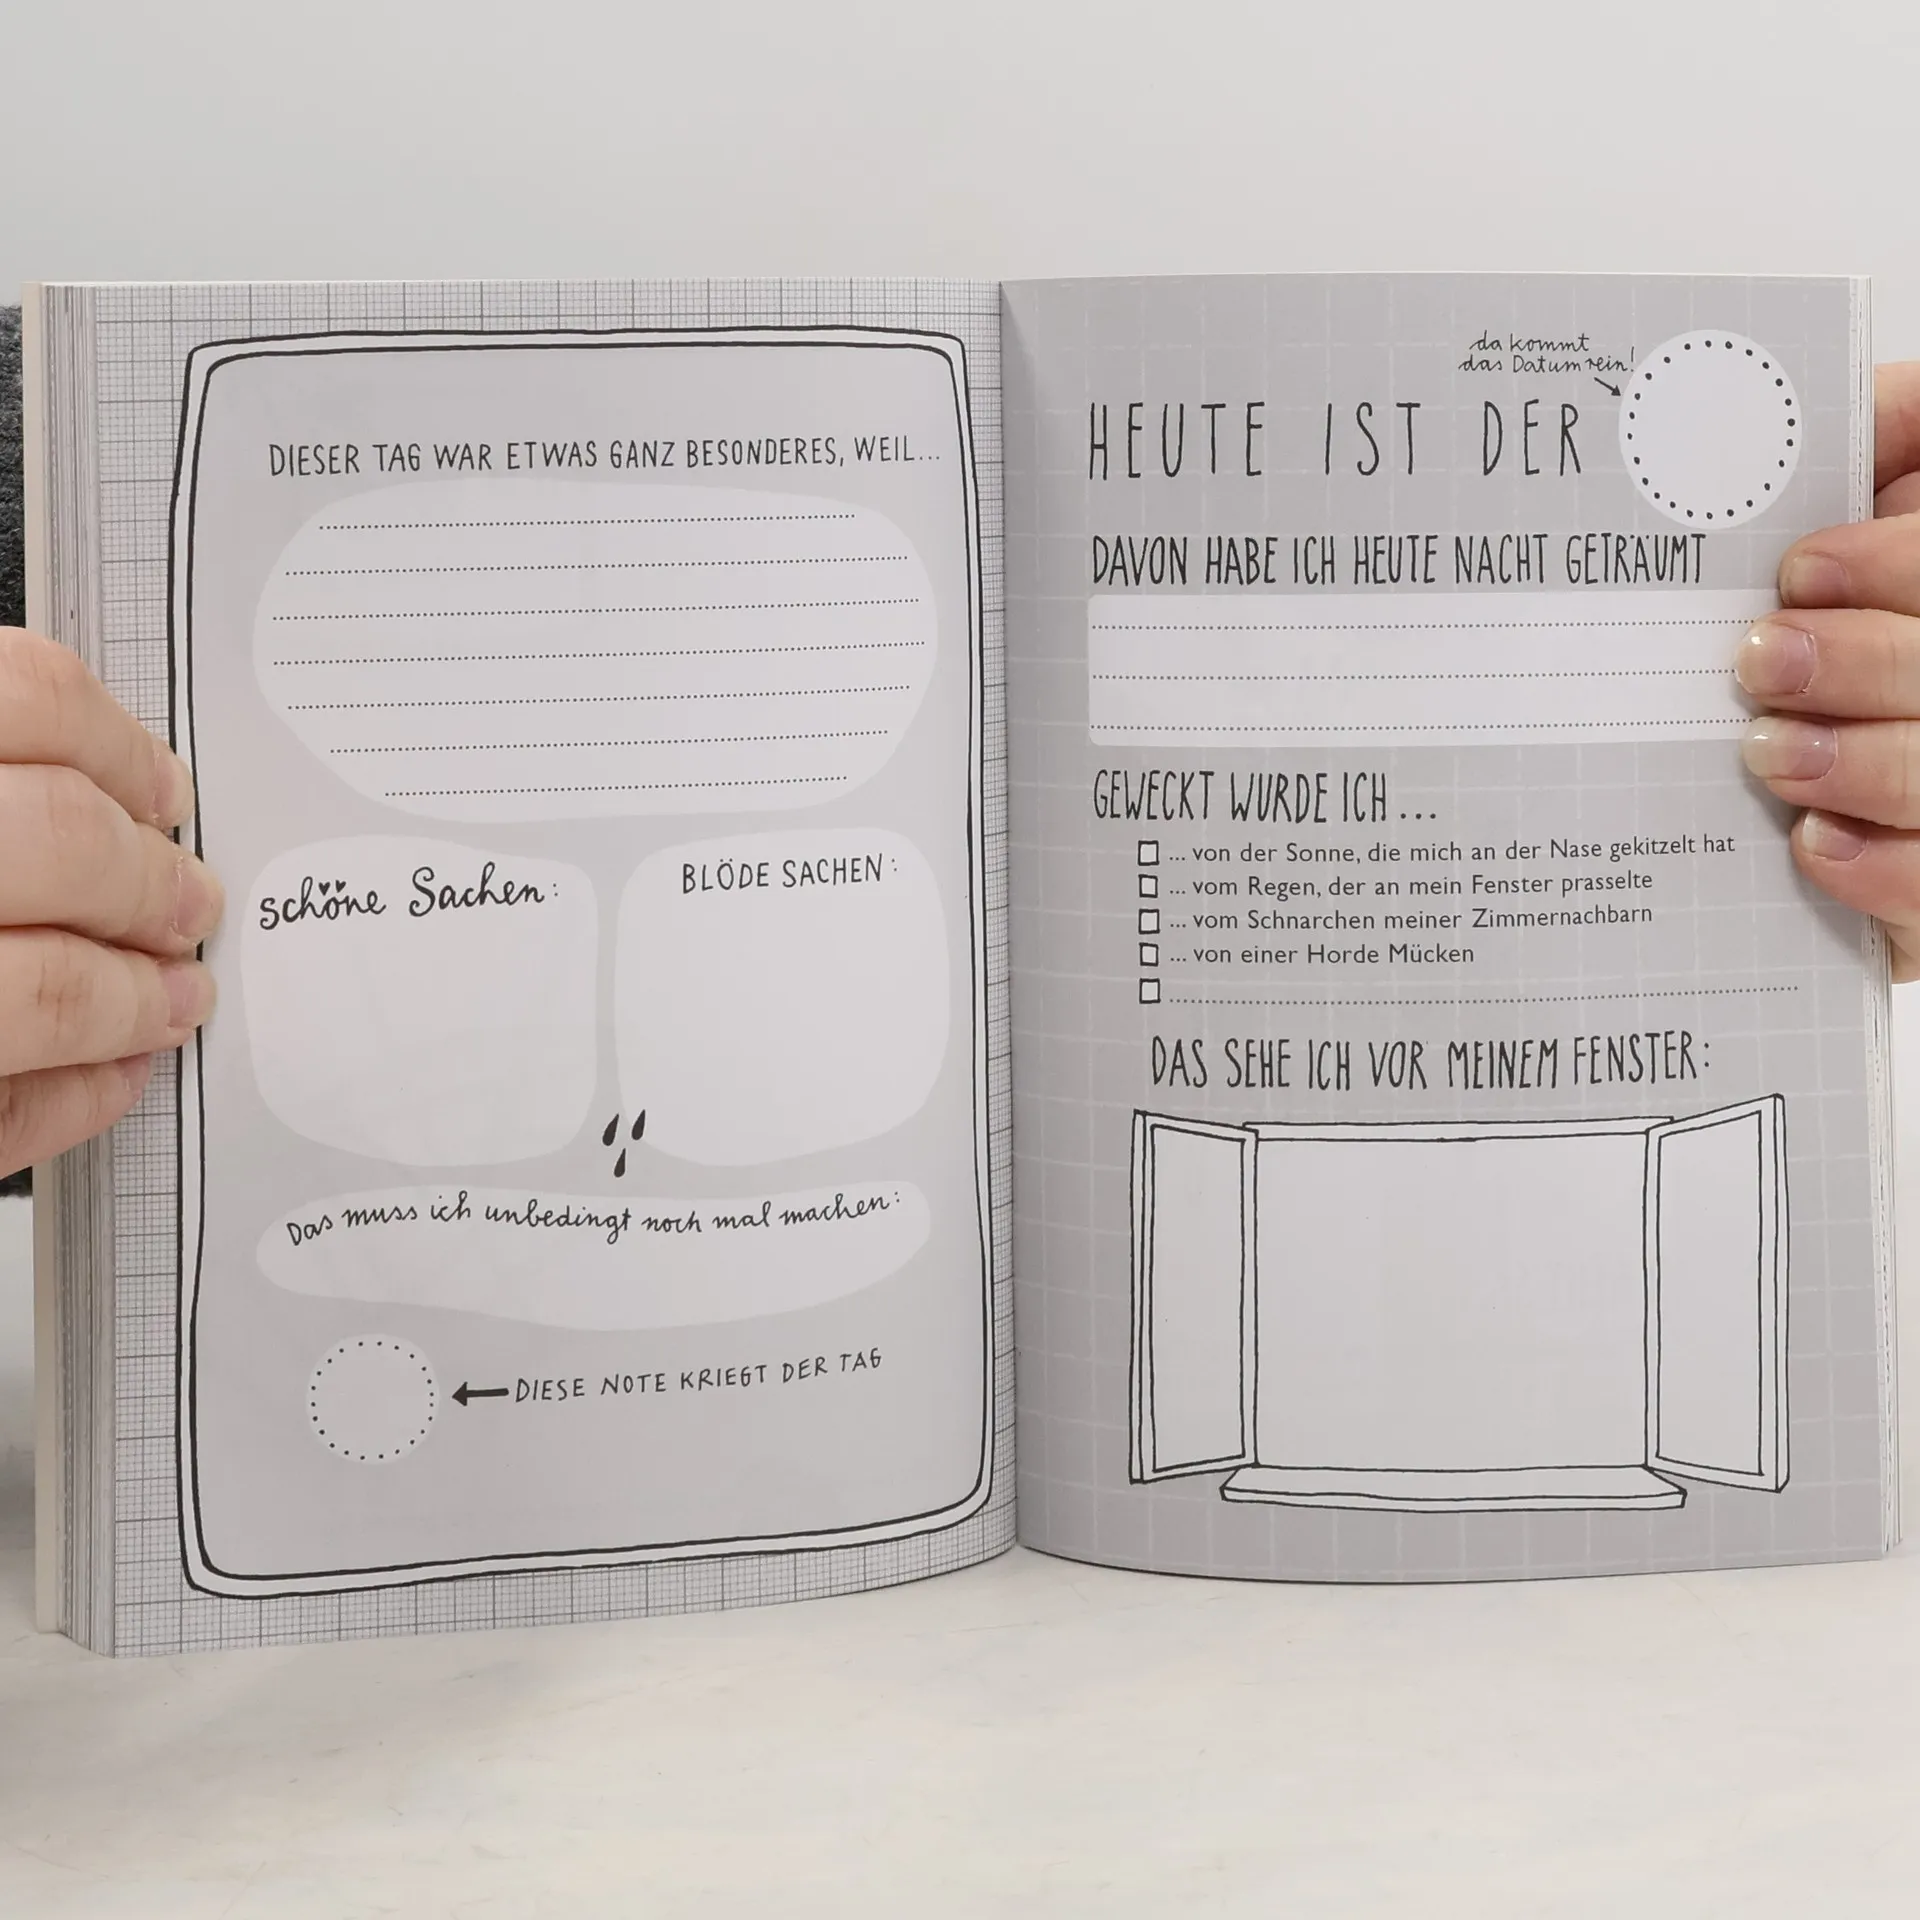 DIESER TAG WAR ETWAS GANZ BESONDERES, WEIL...
schöne Sachen:
BLÖDE SACHEN:
Das muss ich unbedingt noch mal machen:
DIESE NOTE KRIEGT DER TAG
da kommt
das Datum rein!
HEUTE IST DER
DAVON HABE ICH HEUTE NACHT GETRÄUMT
GEWECKT WURDE ICH ...
... von der Sonne, die mich an der Nase gekitzelt hat
... vom Regen, der an mein Fenster prasselte
... vom Schnarchen meiner Zimmernachbarn
... von einer Horde Mücken
DAS SEHE ICH VOR MEINEM FENSTER: